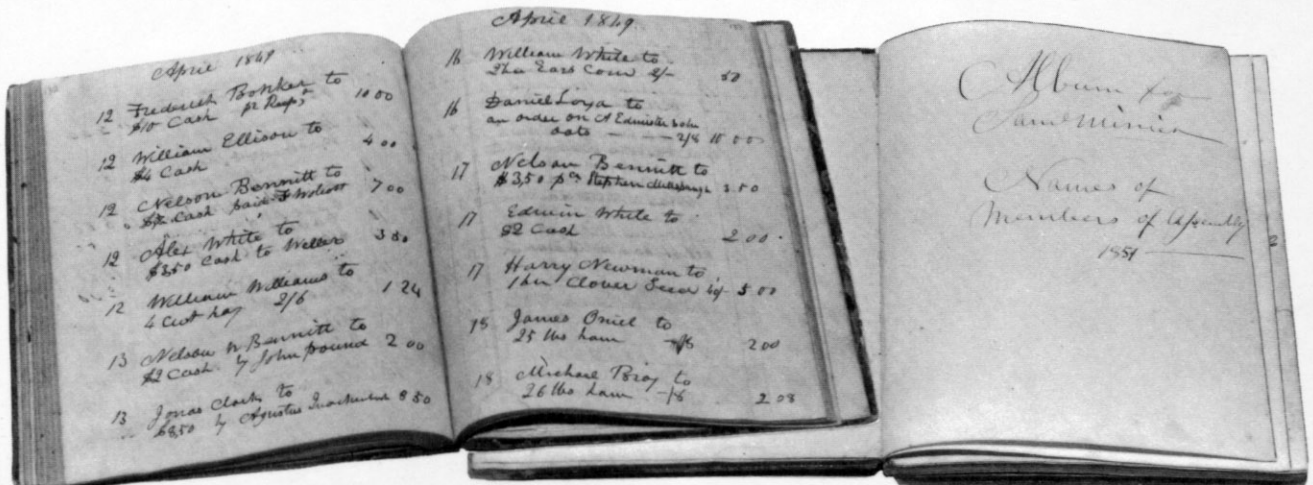 April 1869
12 Frederick Bonker to
$10 Cash pr 10 00
12 William Ellison to
$4 Cash 4 00
12 Nelson Bennitt to
$7 Cash paid 7 00
12 Alex White to
$3,50 Cash to Weller 3 50
12 William Williams to
4 cwt hay 2/6 1 24
13 Nelson W Bennitt to
$2 Cash by John pound 2 00
13 Jonas Clark to
$8,50 by Agustus 8 50
April 1869.
16 William White to
Ears Corn 50
16 Daniel to
an order on A
oats 2/8 10 00
17 Nelson Bennitt to
$3,50 Stephen 3.50
17 Edwin White to
$2 Cash 2 00
17 Harry Newman to
Clover Seed 5 00
18 James Oniel to
25 lbs ham 2 00
18 Michael to
26 lbs ham -/8 2 08
Album for
Names of
Members of Assembly
1851